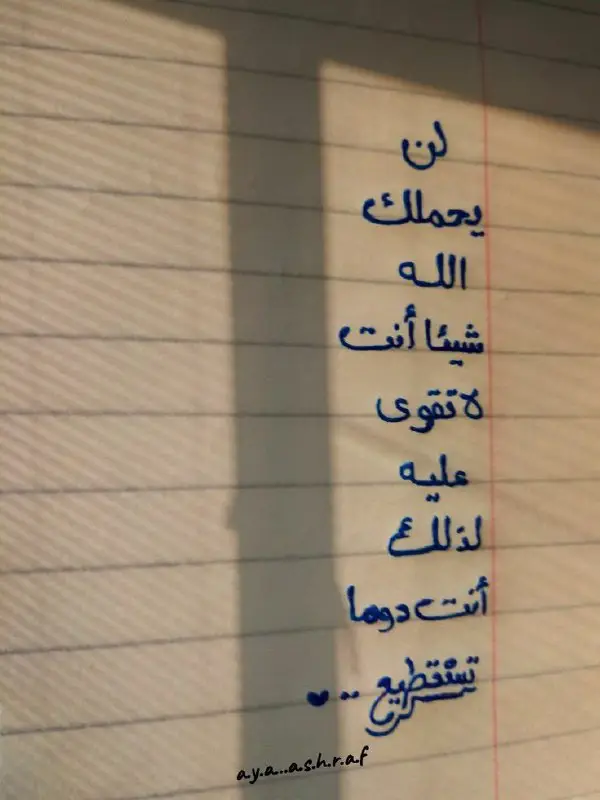 لن
يحملك
الله
شيئا أنت
لا تقوى
عليه
لذلك
أنت دوما
تستطيع .. ♥
a.y.a...a.s.h.r.a.f